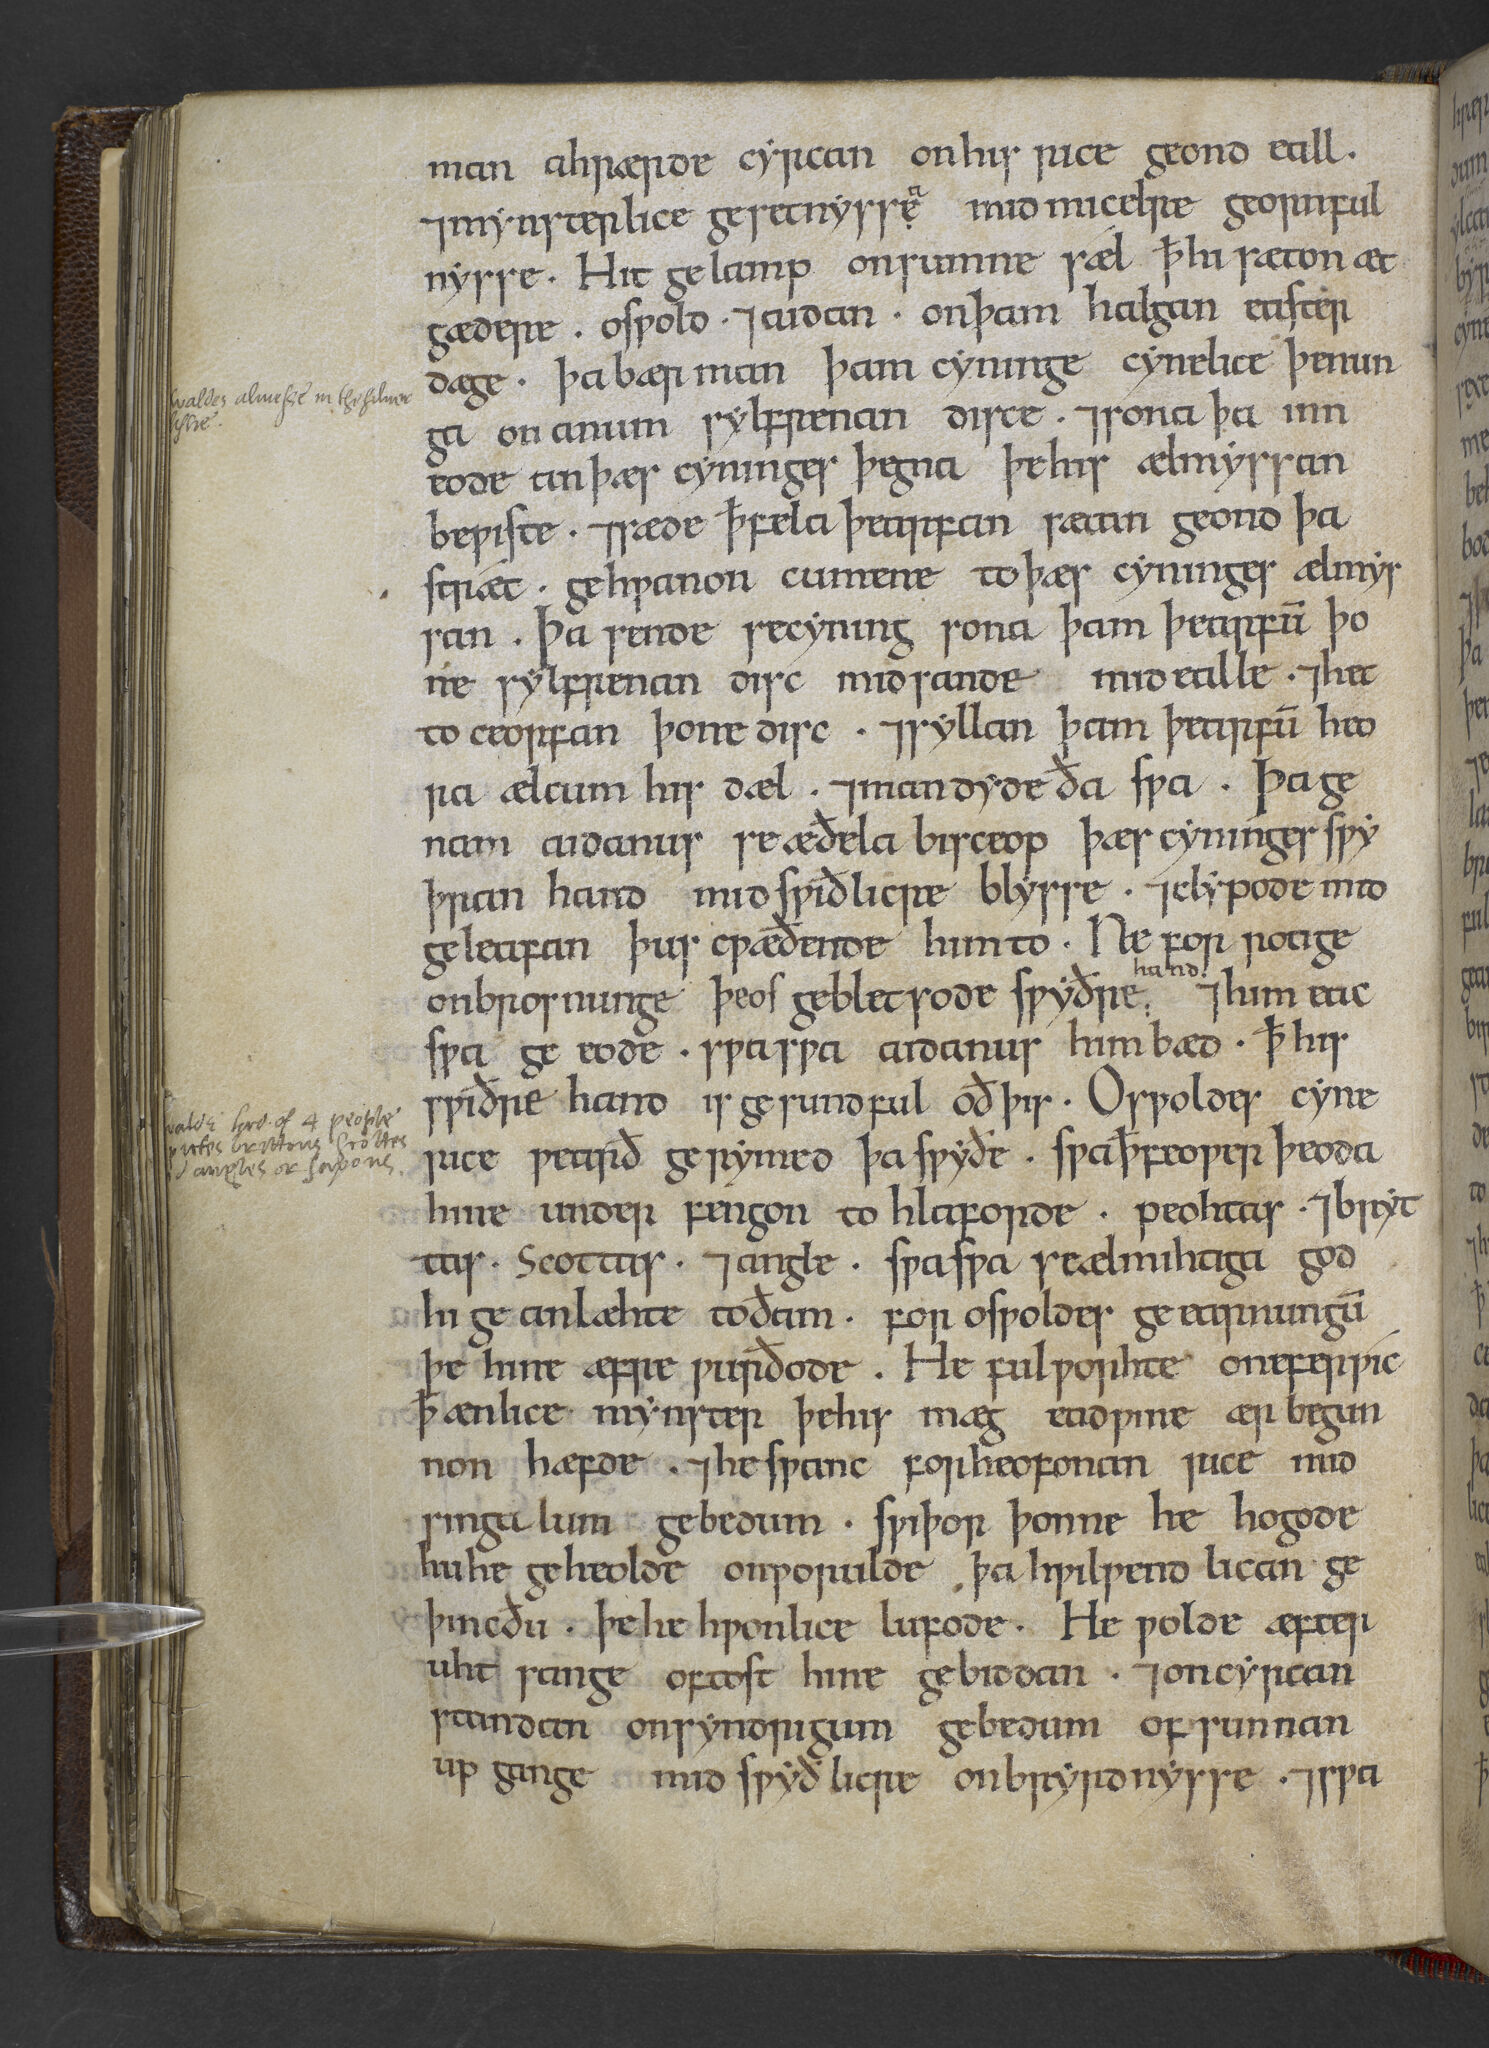 man ahrærde cyrcan on his rice geond eall.
⁊ mynsterlice gesetnysse᷎a mid micelre geornful
nysse. Hit gelamp on sumne sæl ꝥ hi sæton æt
gædere. oswold. ⁊ aidan. on þam halgan easter
dæge. þa bær man þam cyninge cynelice þenun
ga on anum sylfrenan disce. ⁊ sona þa inn
eode an þæs cyninges þegna þe his ælmyssan
bewiste. ⁊ sæde ꝥ fela þearfan sætan geond þa
stræt. gehwanon cumene to þæs cyninges ælmys
san. Þa sende se cyning sona þam þearfū þo
ne sylfrenan disc mid sande mid ealle. ⁊ het
to ceorfan þone disc. ⁊ syllan þam þearfū heo
ra ælcum his dæl. ⁊ man dyde ða swa. Þa ge
nam aidanus se æðela bisceop þæs cyninges swy
þran hand mid swiðlicre blysse. ⁊ clypode mid
geleafan þus cwæðende him to. Ne forrotige
on brosnunge þeos gebletsode swyðre hand. ⁊ him eac
swa ge eode. swa swa aidanus him bæd. ꝥ his
swiðre hand is gesundful oð þis. Oswoldes cyne
rice wearð gerymed þa swyðe. swa ꝥ feower þeoda
hine underfengon to hlaforde. peohtas. ⁊ bryt
tas. Scottas. ⁊ angle. swa swa se ælmihtiga god
hi ge anlæhte to ðam. for oswoldes ge earnungū
þe hine æfre wurðode. He fulworhte on eferwic
ꝥ ænlice mynster þe his mæg eadwine ær begun
non hæfde. ⁊ he swanc for heofonan rice mid
singalum gebedum. swiþor þonne he hogode
hu he geheolde on worulde þa hwilwendlican ge
þincðu. þe he hwonlice lufode. He wolde æfter
uht sange oftost hine gebiddan. ⁊ on cyrcan
standan on syndrigum gebedum of sunnan
up gange mid swyðlicre onbryrdnysse. ⁊ swa
waldes almesse in the silver
dishe.
4 people
pictes brittons scottes
angles or saxons.